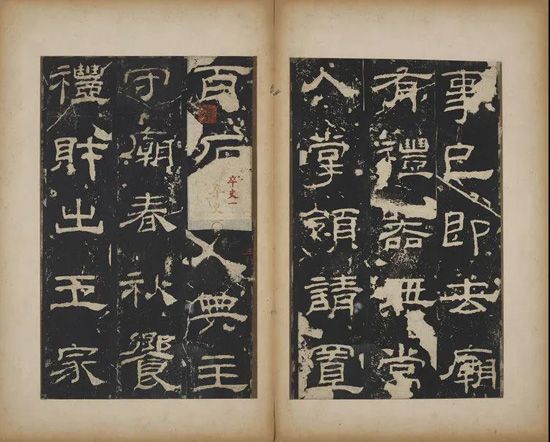 事已即去廟
有禮器無常
人掌領請置
百石卒史一人典主
守廟春秋饗
禮財出王家